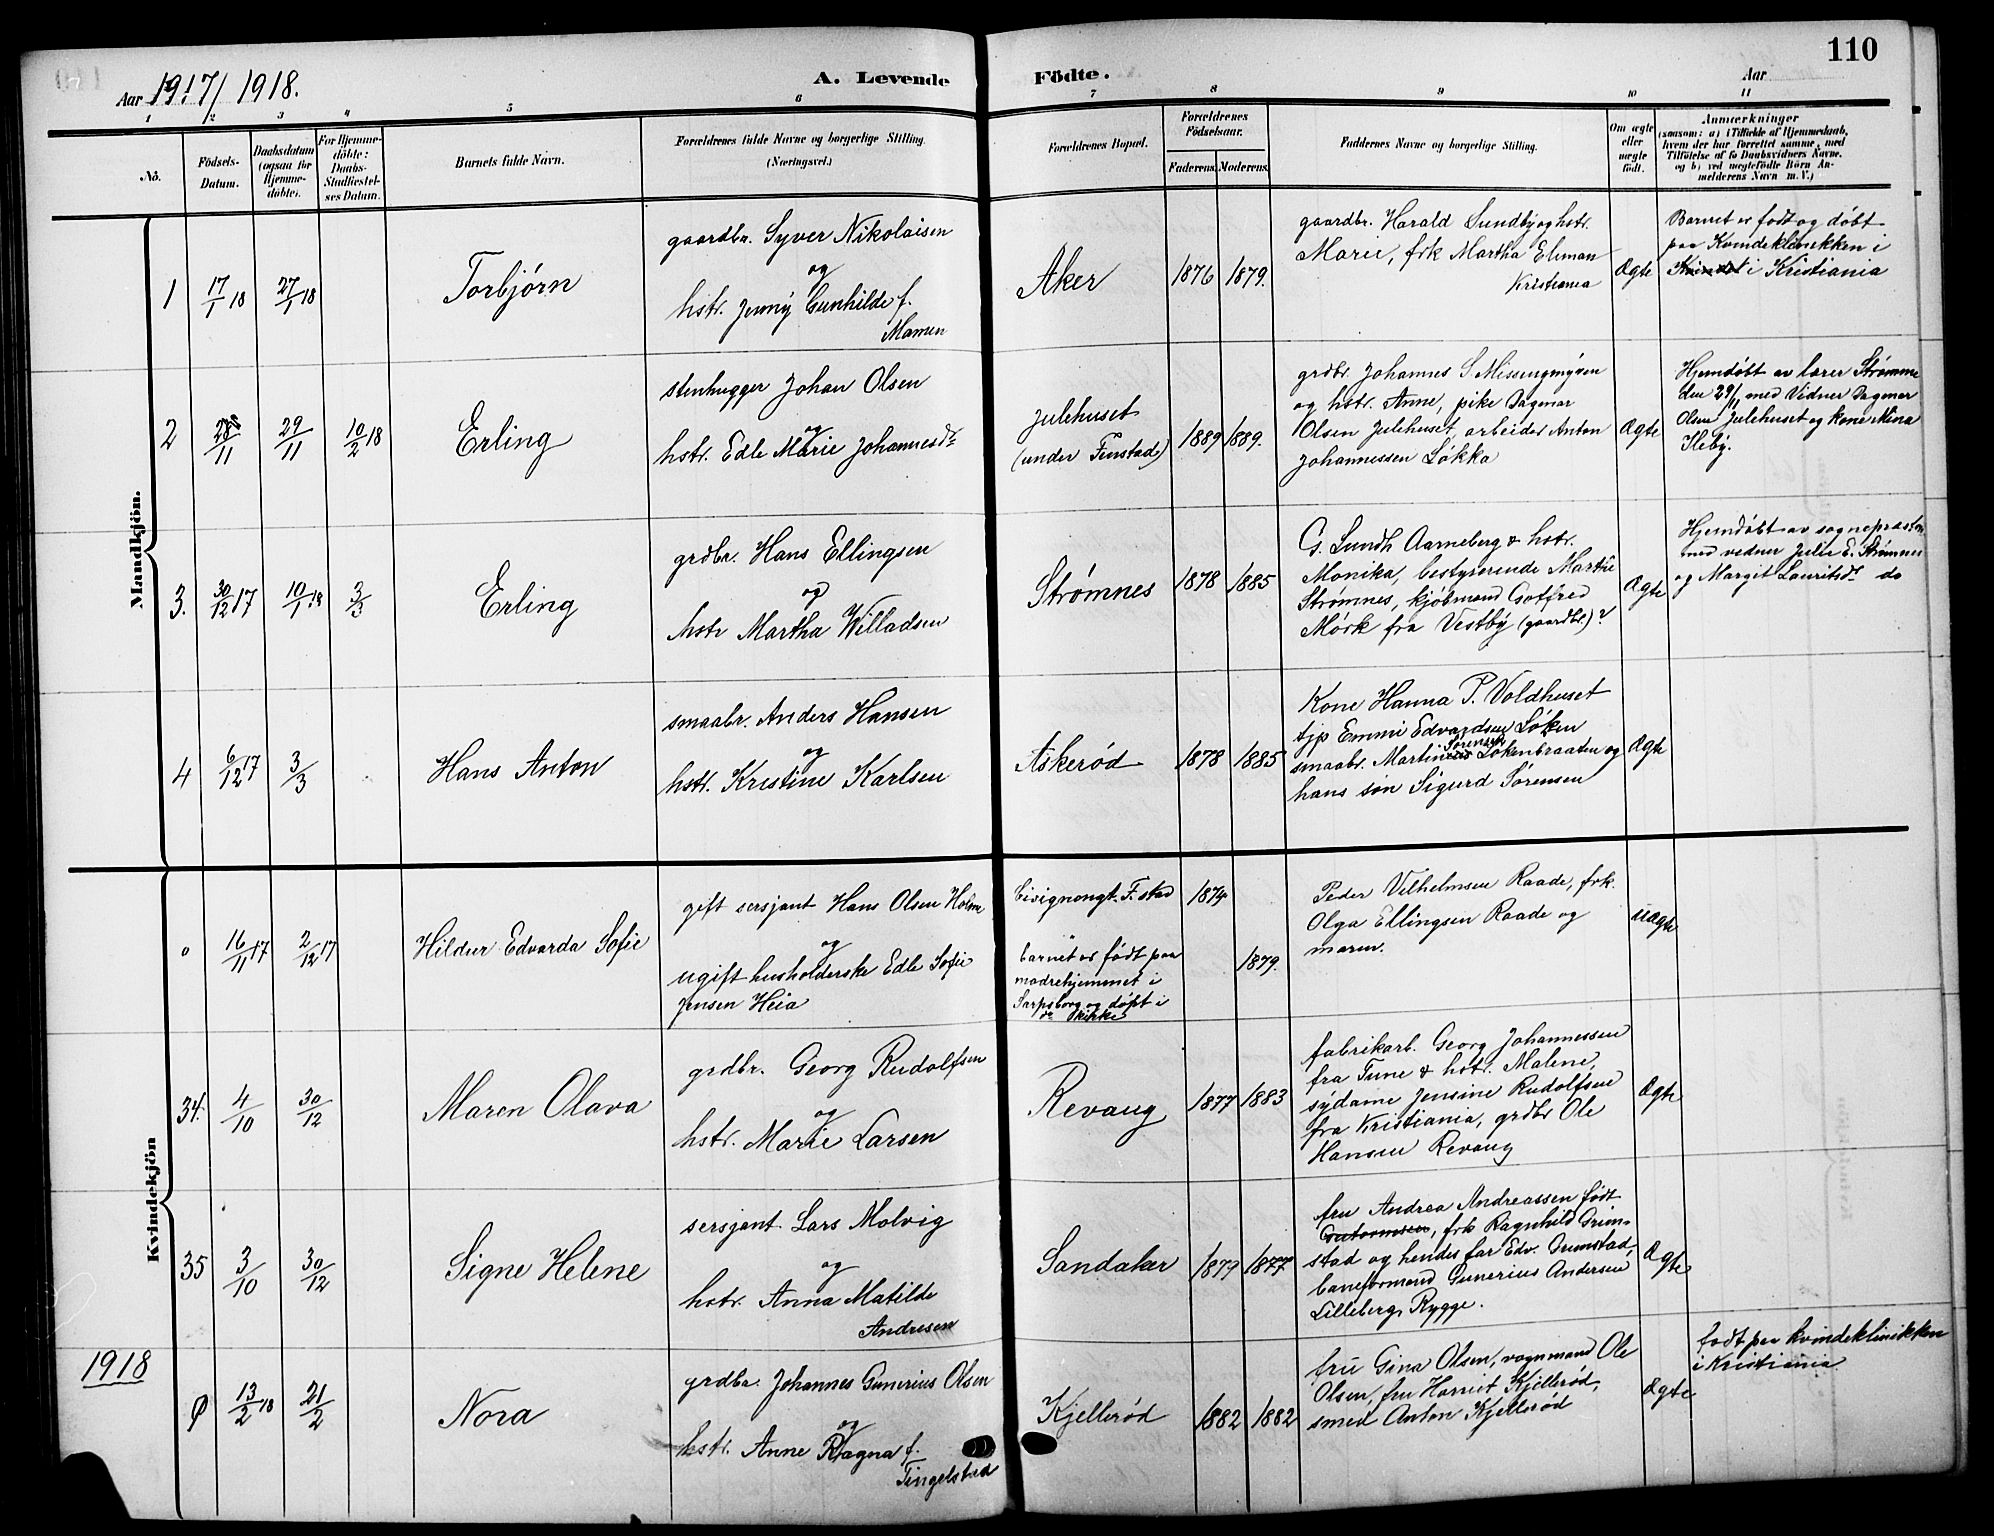 110
Aar 1917/1918.
A. Levende Födte.
Aar
1 2 3 4 5 6 7 8 9 10 11
No.
Födsels-
Datum.
Daabsdatum
(ogsaa for
Hjemme-
döbte).
For Hjemme-
döbte:
Daabs-
Stadfæstel-
ses Datum.
Barnets fulde Navn.
Forældrenes fulde Navne og borgerlige Stilling.
(Næringsvei.)
Forældrenes Bopæl.
Forældrenes
Födselsaar.
Faderens. Moderens.
Faddernes Navne og borgerlige Stilling.
Om ægte
eller
uægte
födt.
Anmærkninger
(saasom: a) i Tilfælde af Hjemmedaab,
hvem der har forrettet samme, med
Tilföielse af to Daabsvidners Navne.
og b) ved uægtefödte Börn An-
melderens Navn m. V.)
Mandkjön.
1
17/1 18
27/1 18
Torbjørn
gaardbr. Syver Nikolaisen
og
hstr. Jenny Gunhilde f.
Mamen
Aker
1876
1879.
gaardbr. Harald Sundby og hstr.
Marie, frk Martha Ekman
Kristiania
Ægte
Barnet er født og døbt
paa Kvindeklinikken i
i Kristiania
2
28/11
29/11
10/2 18
Erling
stenhugger Johan Olsen
og
hstr. Edle Marie Johannesdr
Julehuset
(under Finstad)
1889
1889.
grdbr. Johannes S Missingmyren
og hstr. Anne, pike Dagmar
Olsen Julehuset arbeider Anton
Johannessen Løkka
Ægte
Hjemdøbt av lærer Strømme
den 29/11 med Vidner Dagmar
Olsen Julehuset og kone Mina
Heby.
3.
30/12 17
10/1 18
3/3
Erling
grdbr. Hans Ellingsen
og
hstr Martha Willadsen
Strømnes
1878
1885
G. Lundh Aarneberg & hstr.
Monika, bestyrerende Marthe
Strømnes, kjøbmand Gotfred
Mørk fra Vestby (gaardbr) ?
Ægte
Hjemdøbt av sogneprästen
med vidner Julie E. Strømnes
og Margit Lauritsdr do
4
6/12 17
3/3
Hans Anton
smaabr. Anders Hansen
og
hstr. Kristine Karlsen
Askerød
1878
1885
Kone Hanna P. Voldhuset
tjp Emmi Edvardsen Løken
Sørensen
smaabr. Martin Løkenbraaten og
hans søn Sigurd Sørensen
Ægte
Kvindekjön
0
16/11 17
2/12 17
Hildur Edvarda Sofie
gift sersjant Hans Olsen Holm
og
ugift husholderske Edle Sofie
Jensen Heia
F.stad
barnet er født paa
mødrehjemmet i
Sarpsborg og døpt i
do kirke
1874
1879.
Peder Vilhelmsen Raade, frk.
Olga Ellingsen Raade og
moren.
Uægte
34.
4/10
30/12
Maren Olava
grdbr. Georg Rudolfsen
og
hstr. Marie Larsen
Revaug
1877
1883
fabrikarb. Georg Johannessen
fra Tune & hstr. Malene,
sydame Jensine Rudolfsen
fra Kristiania, grdbr Ole
Hansen Revaug
Ægte
35
3/10
30/12
Signe Helene
sersjant Lars Molvig
og
hstr. Anna Matilde
Andresen
Sandaker
1879
1877
fru Andrea Andreassen født
Guttormsen, frk Ragnhild Grim-
stad og hendes far Edv. Grimstad,
baneformand Gunerius Andersen
Lilleberg, Rygge.
Ægte
1918
0
13/2 18
21/2
Nora
grdbr. Johannes Gunerius Olsen
og
hstr. Anne Ragna f.
Tingelstad
Kjellerød
1882
1882
fru Gina Olsen, vognmand Ole
Olsen, fru Harriet Kjellerød,
smed Anton Kjellerød
Ægte
født paa kvindeklinikken
i Kristiania